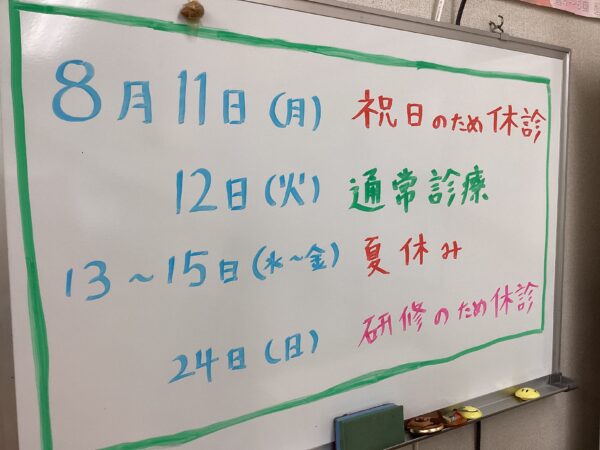 8月11日(月) 祝日のため休診
12日(火) 通常診療
13～15日(水～金) 夏休み
24日(日) 研修のため休診